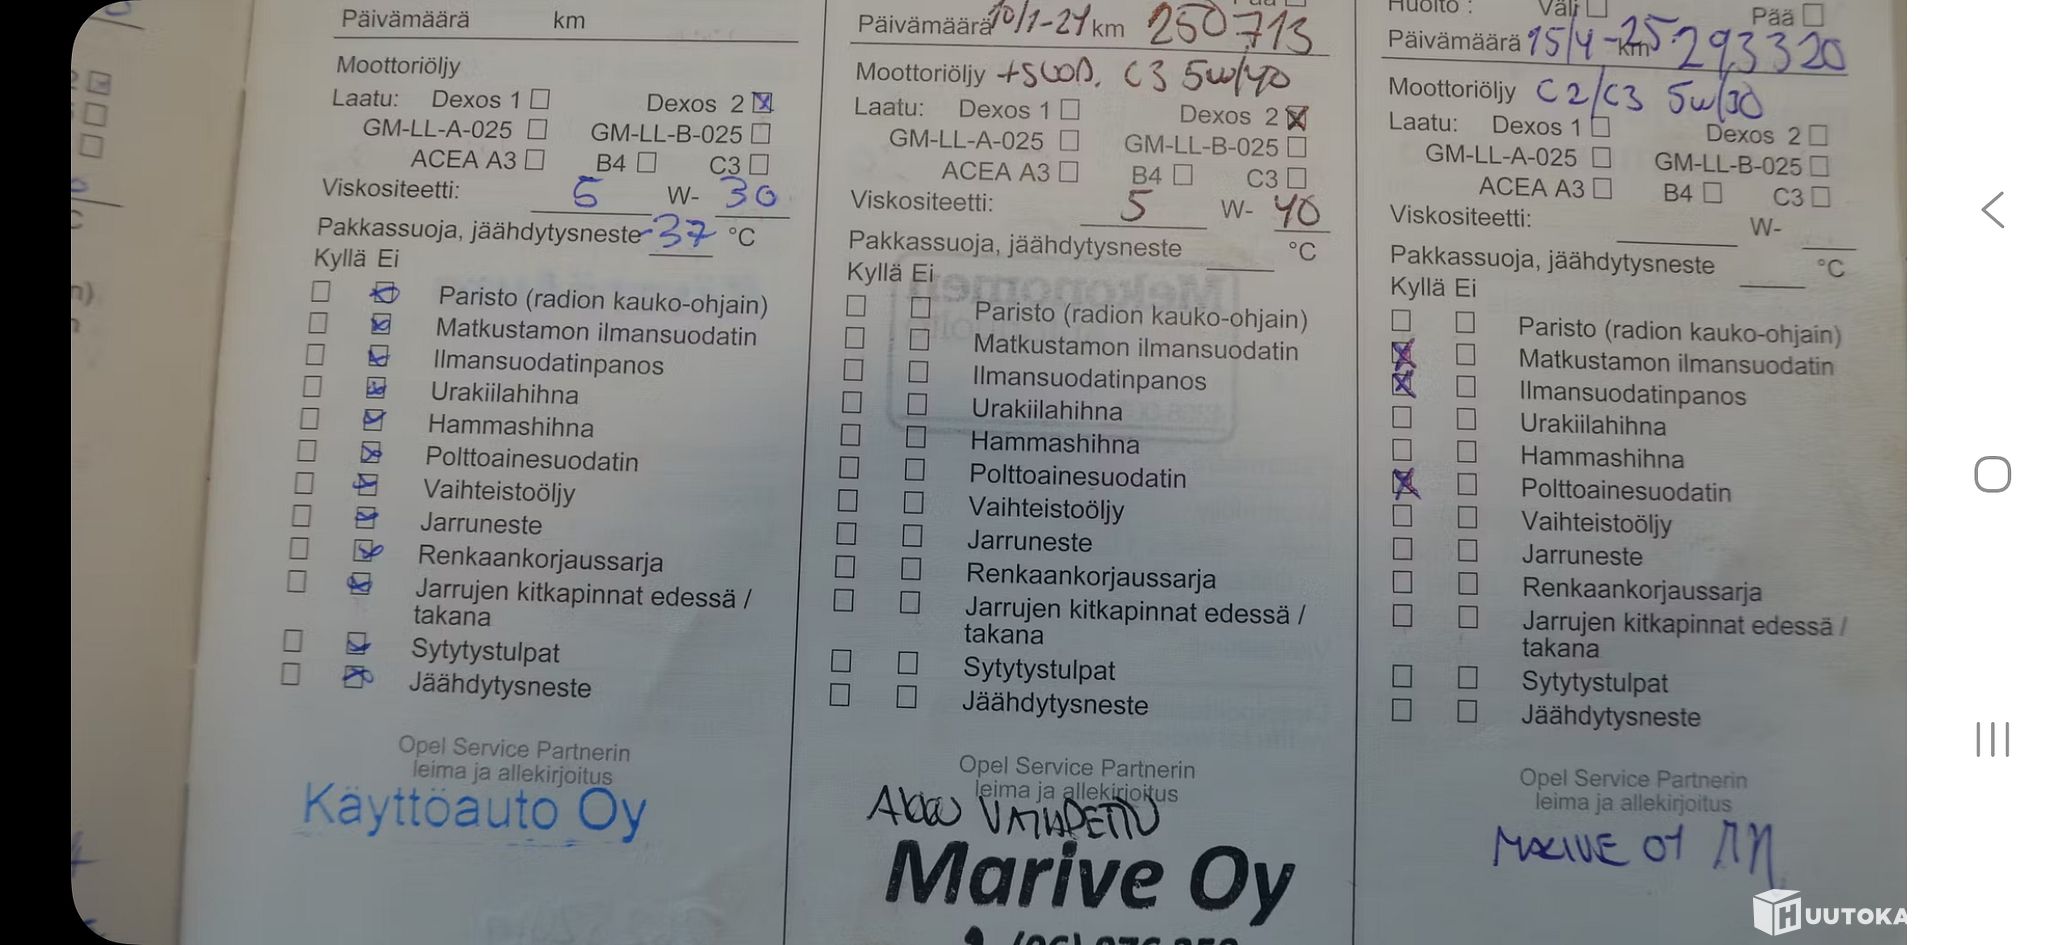 Päivämäärä km
Moottoriöljy
Laatu: Dexos 1 Dexos 2
GM-LL-A-025 GM-LL-B-025
ACEA A3 B4 C3
Viskositeetti: 5 W- 30
Pakkassuoja, jäähdytysneste -37 °C
Kyllä Ei
Paristo (radion kauko-ohjain)
Matkustamon ilmansuodatin
Ilmansuodatinpanos
Urakiilahihna
Hammashihna
Polttoainesuodatin
Vaihteistoöljy
Jarruneste
Renkaankorjaussarja
Jarrujen kitkapinnat edessä /
takana
Sytytystulpat
Jäähdytysneste
Opel Service Partnerin
leima ja allekirjoitus
Käyttöauto Oy
Päivämäärä 10/1-24 km 250713
Moottoriöljy +SUOD. C3 5W/40
Laatu: Dexos 1 Dexos 2
GM-LL-A-025 GM-LL-B-025
ACEA A3 B4 C3
Viskositeetti: 5 W- 40
Pakkassuoja, jäähdytysneste °C
Kyllä Ei
Paristo (radion kauko-ohjain)
Matkustamon ilmansuodatin
Ilmansuodatinpanos
Urakiilahihna
Hammashihna
Polttoainesuodatin
Vaihteistoöljy
Jarruneste
Renkaankorjaussarja
Jarrujen kitkapinnat edessä /
takana
Sytytystulpat
Jäähdytysneste
Opel Service Partnerin
leima ja allekirjoitus
AKKU VAIHDETTU
Marive Oy
Huolto: Väli Pää
Päivämäärä 15/4-25 km 293320
Moottoriöljy C2/C3 5W/30
Laatu: Dexos 1 Dexos 2
GM-LL-A-025 GM-LL-B-025
ACEA A3 B4 C3
Viskositeetti: W-
Pakkassuoja, jäähdytysneste °C
Kyllä Ei
Paristo (radion kauko-ohjain)
Matkustamon ilmansuodatin
Ilmansuodatinpanos
Urakiilahihna
Hammashihna
Polttoainesuodatin
Vaihteistoöljy
Jarruneste
Renkaankorjaussarja
Jarrujen kitkapinnat edessä /
takana
Sytytystulpat
Jäähdytysneste
Opel Service Partnerin
leima ja allekirjoitus
MARIVE OY
HUUTOKA